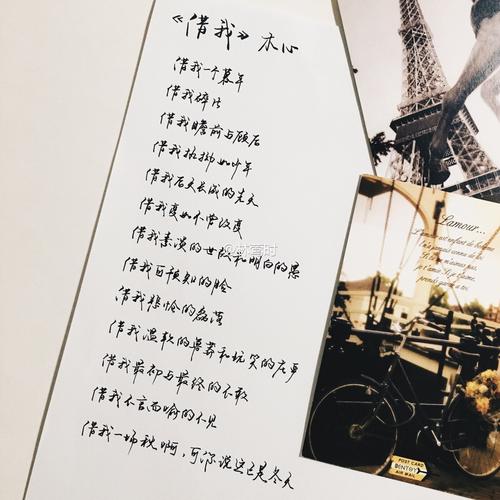 《借我》 木心
借我一个暮年
借我碎片
借我瞻前与顾后
借我执拗如少年
借我后天长成的先天
借我变如不曾改变
借我素淡的世故和明白的愚
借我可预知的脸
借我悲怆的磊落
借我温软的鲁莽和玩笑的庄严
借我最初与最终的不敢
借我不言而喻的不见
借我一场秋啊，可你说这已是冬天
L'amour...
L'amour est enfant de bohème
Il n'a jamais connu de loi
Si tu ne m'aimes pas,
je t'aime, Si je t'aime,
prends garde à toi.
POST CARD
AIR MAIL